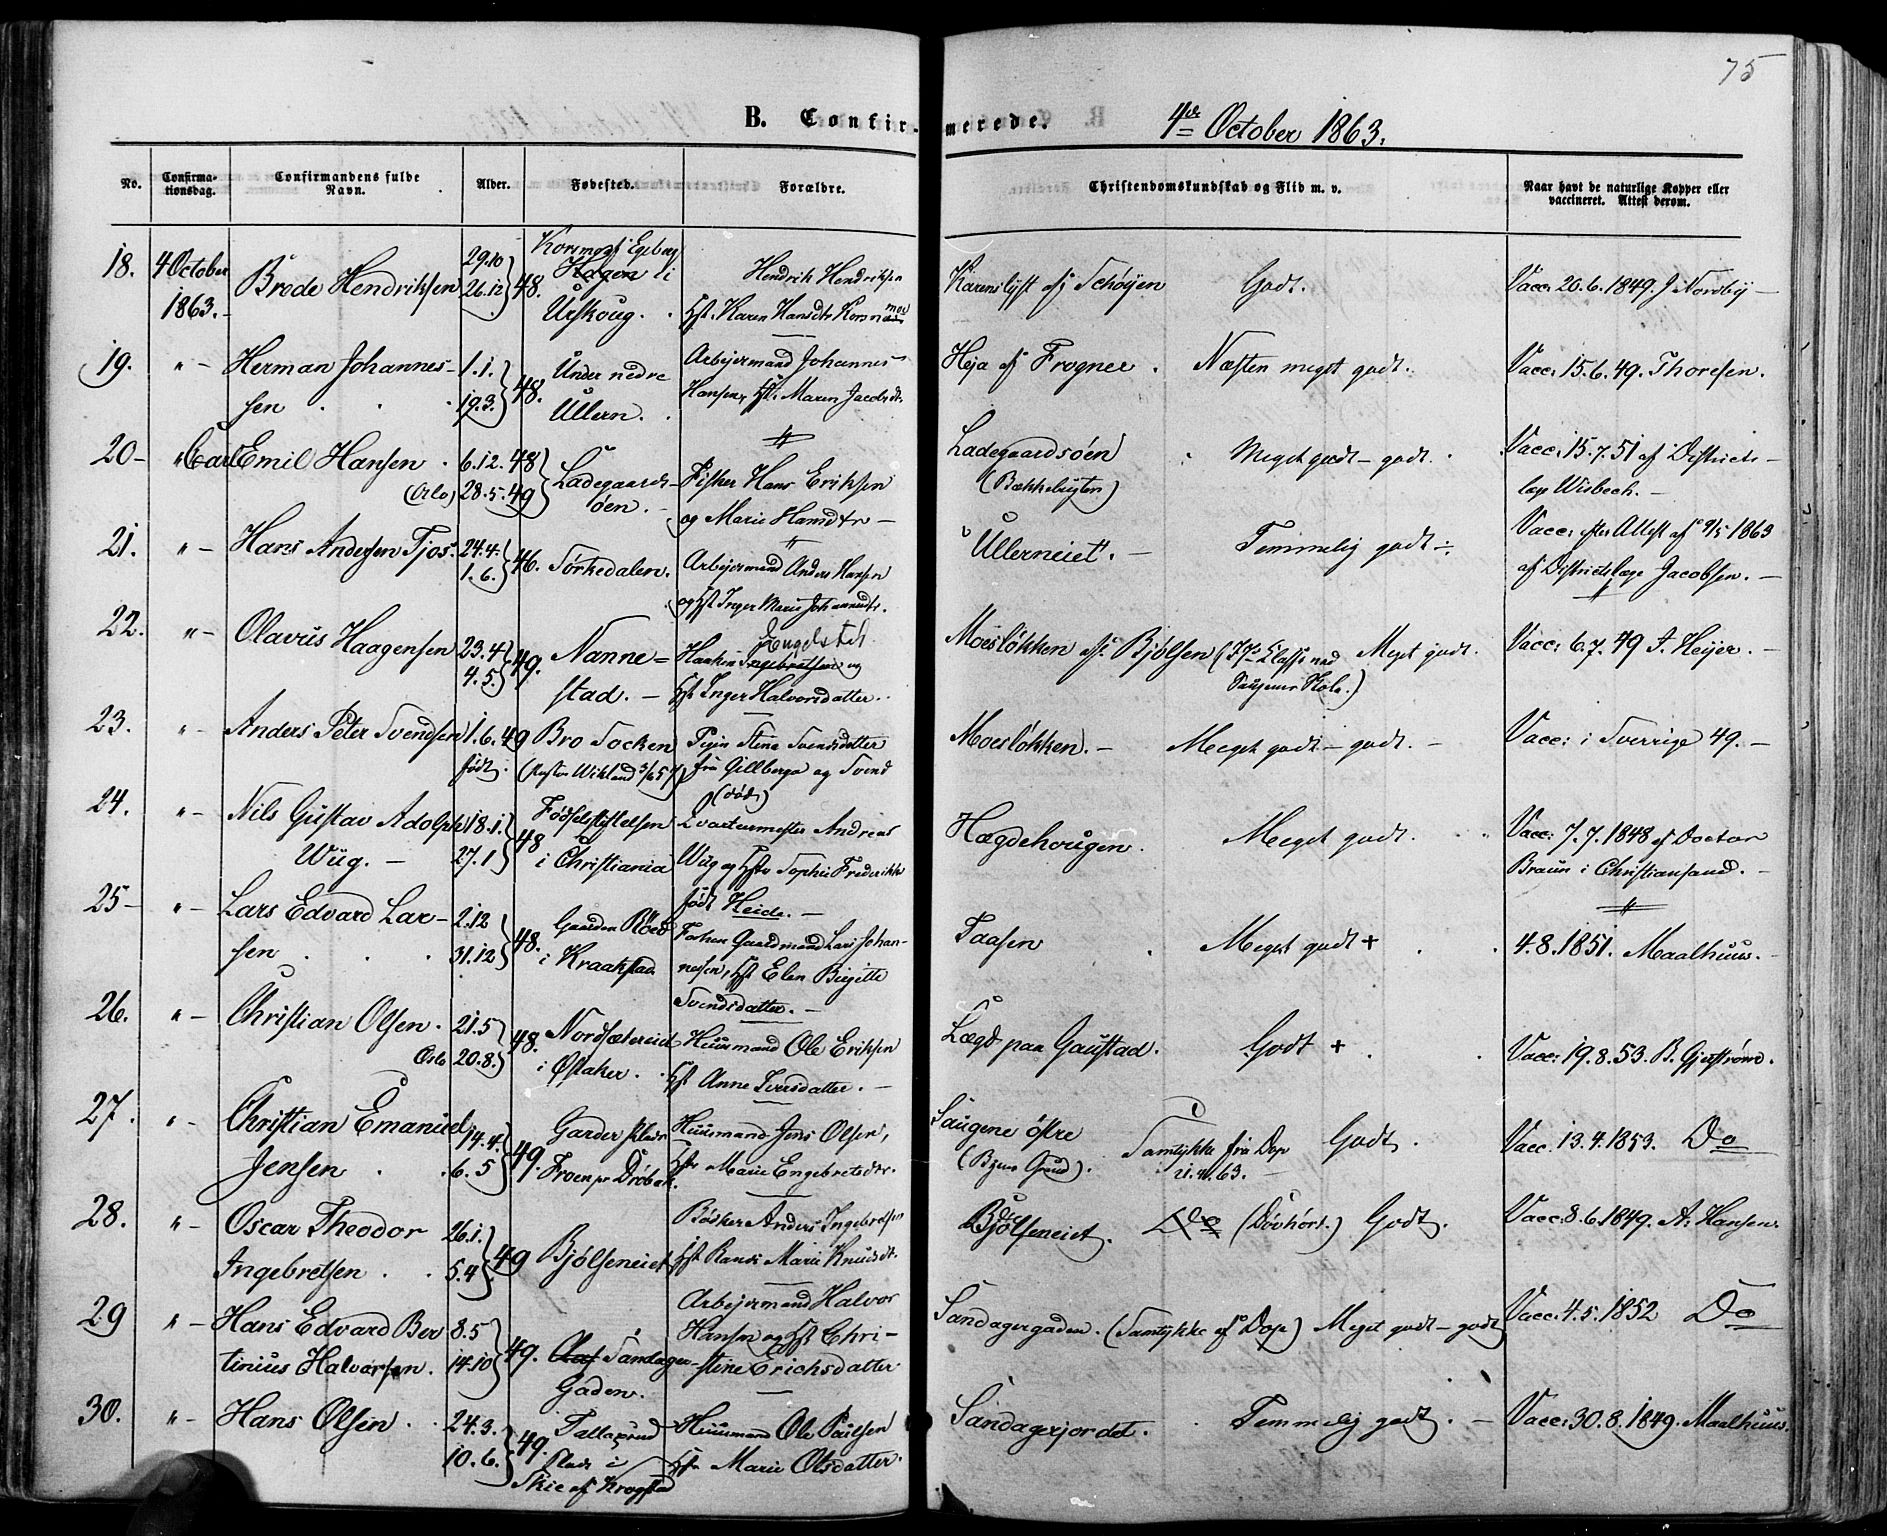 75
B. Confirmerede. 4de October 1863.
No. Confirmationsdag. Confirmandens fulde Navn. Alder. Fødested. Forældre. Christendomskundskab og Flid m. v. Naar havt de naturlige Kopper eller vaccineret. Attest derom.
18. 4 October 29.10 Korsmo Egeberg
Hagen i Hendrik Hendriksen Karenslyst af Schøyen Godt. Vacc: 20.6.1849. J Nordby —
1863. Brede Hendriksen 26.12 48. Urskoug. Hst. Karen Hansdtr Korsmoe
19. " — Herman Johannes- 1.1. Under nedre Arbeidermand Johannes Heja af Frogner. Næsten meget godt. Vacc: 15.6.49. Thoresen.
sen 19.3. 48. Ullern. Hansen, Hst. Maren Jacobsdt.
20 — " Carl Emil Hansen 6.12.48 Ladegaards- Fisker Hans Eriksen Ladegaardsøen Meget godt — godt. Vacc: 15.7.51 af Districts-
(Oslo) 28.5.49 øen. — og Marie Hansdtr — (Bækkebugten) læge Wisbech. —
21. " — Hans Andersen Tjos. 24.4. 46. Sørkedalen. Arbeidermand Anders Hansen Ullerneiet. — Temmelig godt ÷ Vacc: efter Attest af 9/5 1863
1.6. og Hst Inger Marie Johannesdtr. af Districtslæge Jacobsen. —
22. " — Olavus Haagensen 23.4 49. Nanne- Engelstad Moesløkken af Bjølsen Meget godt. Vacc: 6.7.49 A. Heijer. —
4.5. stad. — Haaken Ingebretsen og
Hst Inger Halvorsdatter.
23. " — Anders Peter Svendsen 1.6.49 Bro Socken Pigen Stena Svendsdatter Moesløkken. — Meget godt — godt. — Vacc: i Sverrige 49. —
født. fra Gillberga og Svend
(død)
24. " — Nils Gustav Adolph 18.1. Fødselsstiftelsen Qvarteermester Andreas Hægdehougen. Meget godt. Vacc: 7.7.1848 af Doctor
Wüg. — 27.1 48 i Christiania Wüg og Hstr Sophie Frederikke Braun i Christiansand. —
født Heide. —
25 — " — Lars Edvard Lar- 2.12 48. Gaarden Røed Gaardmand Lars Johan- Taasen Meget godt + 4.8.1851. Maalhuus. —
sen 31.12 i Kraakstad nesen, Hst Elen Birgitte
Svendsdatter. —
26. " — Christian Olsen. 21.5 48. Nordsætereiet Huusmand Ole Eriksen Lægd paa Gaustad. Godt + Vacc: 19.8.53. B. Gjerstrøm.
Oslo 20.8. i Østaker. Hst Anne Iversdatter. —
27. " — Christian Emanuel 14.4. 49. Garder Huusmand Jens Olsen, Saugene østre Samtykke fra Dep Godt. Vacc. 13.4.1853. Do
Jensen 6.5 Froen pr Drøbak. Hstr Marie Engebretsdtr.
28. " — Oscar Theodor 26.1. 49 Bjølseneiet Bøsker Anders Ingebretsen Bjølseneiet. Do (Døvhørt.) Godt. Vacc. 8.6.1849. A. Hansen.
Ingebretsen 5.4 Hst Randi Marie Knudsdt.
29 " — Hans Edvard Ber 8.5 49. Sandager- Arbeidermand Halvor Sandagergaden. (Samtykke af Dep) Meget godt — godt Vacc: 4.5.1852 Do
tinius Halvorsen. 14.10 Gaden. Hansen og Hst Chri-
stine Erichsdatter
30. " — Hans Olsen. 24.3. 49. Huusmand Ole Paulsen Sandagerjordet. Temmelig godt. — Vacc: 30.8.1849. Maalhuus.
10.6. Plads i Hstr Marie Olsdatter.
Skie af Krogstad